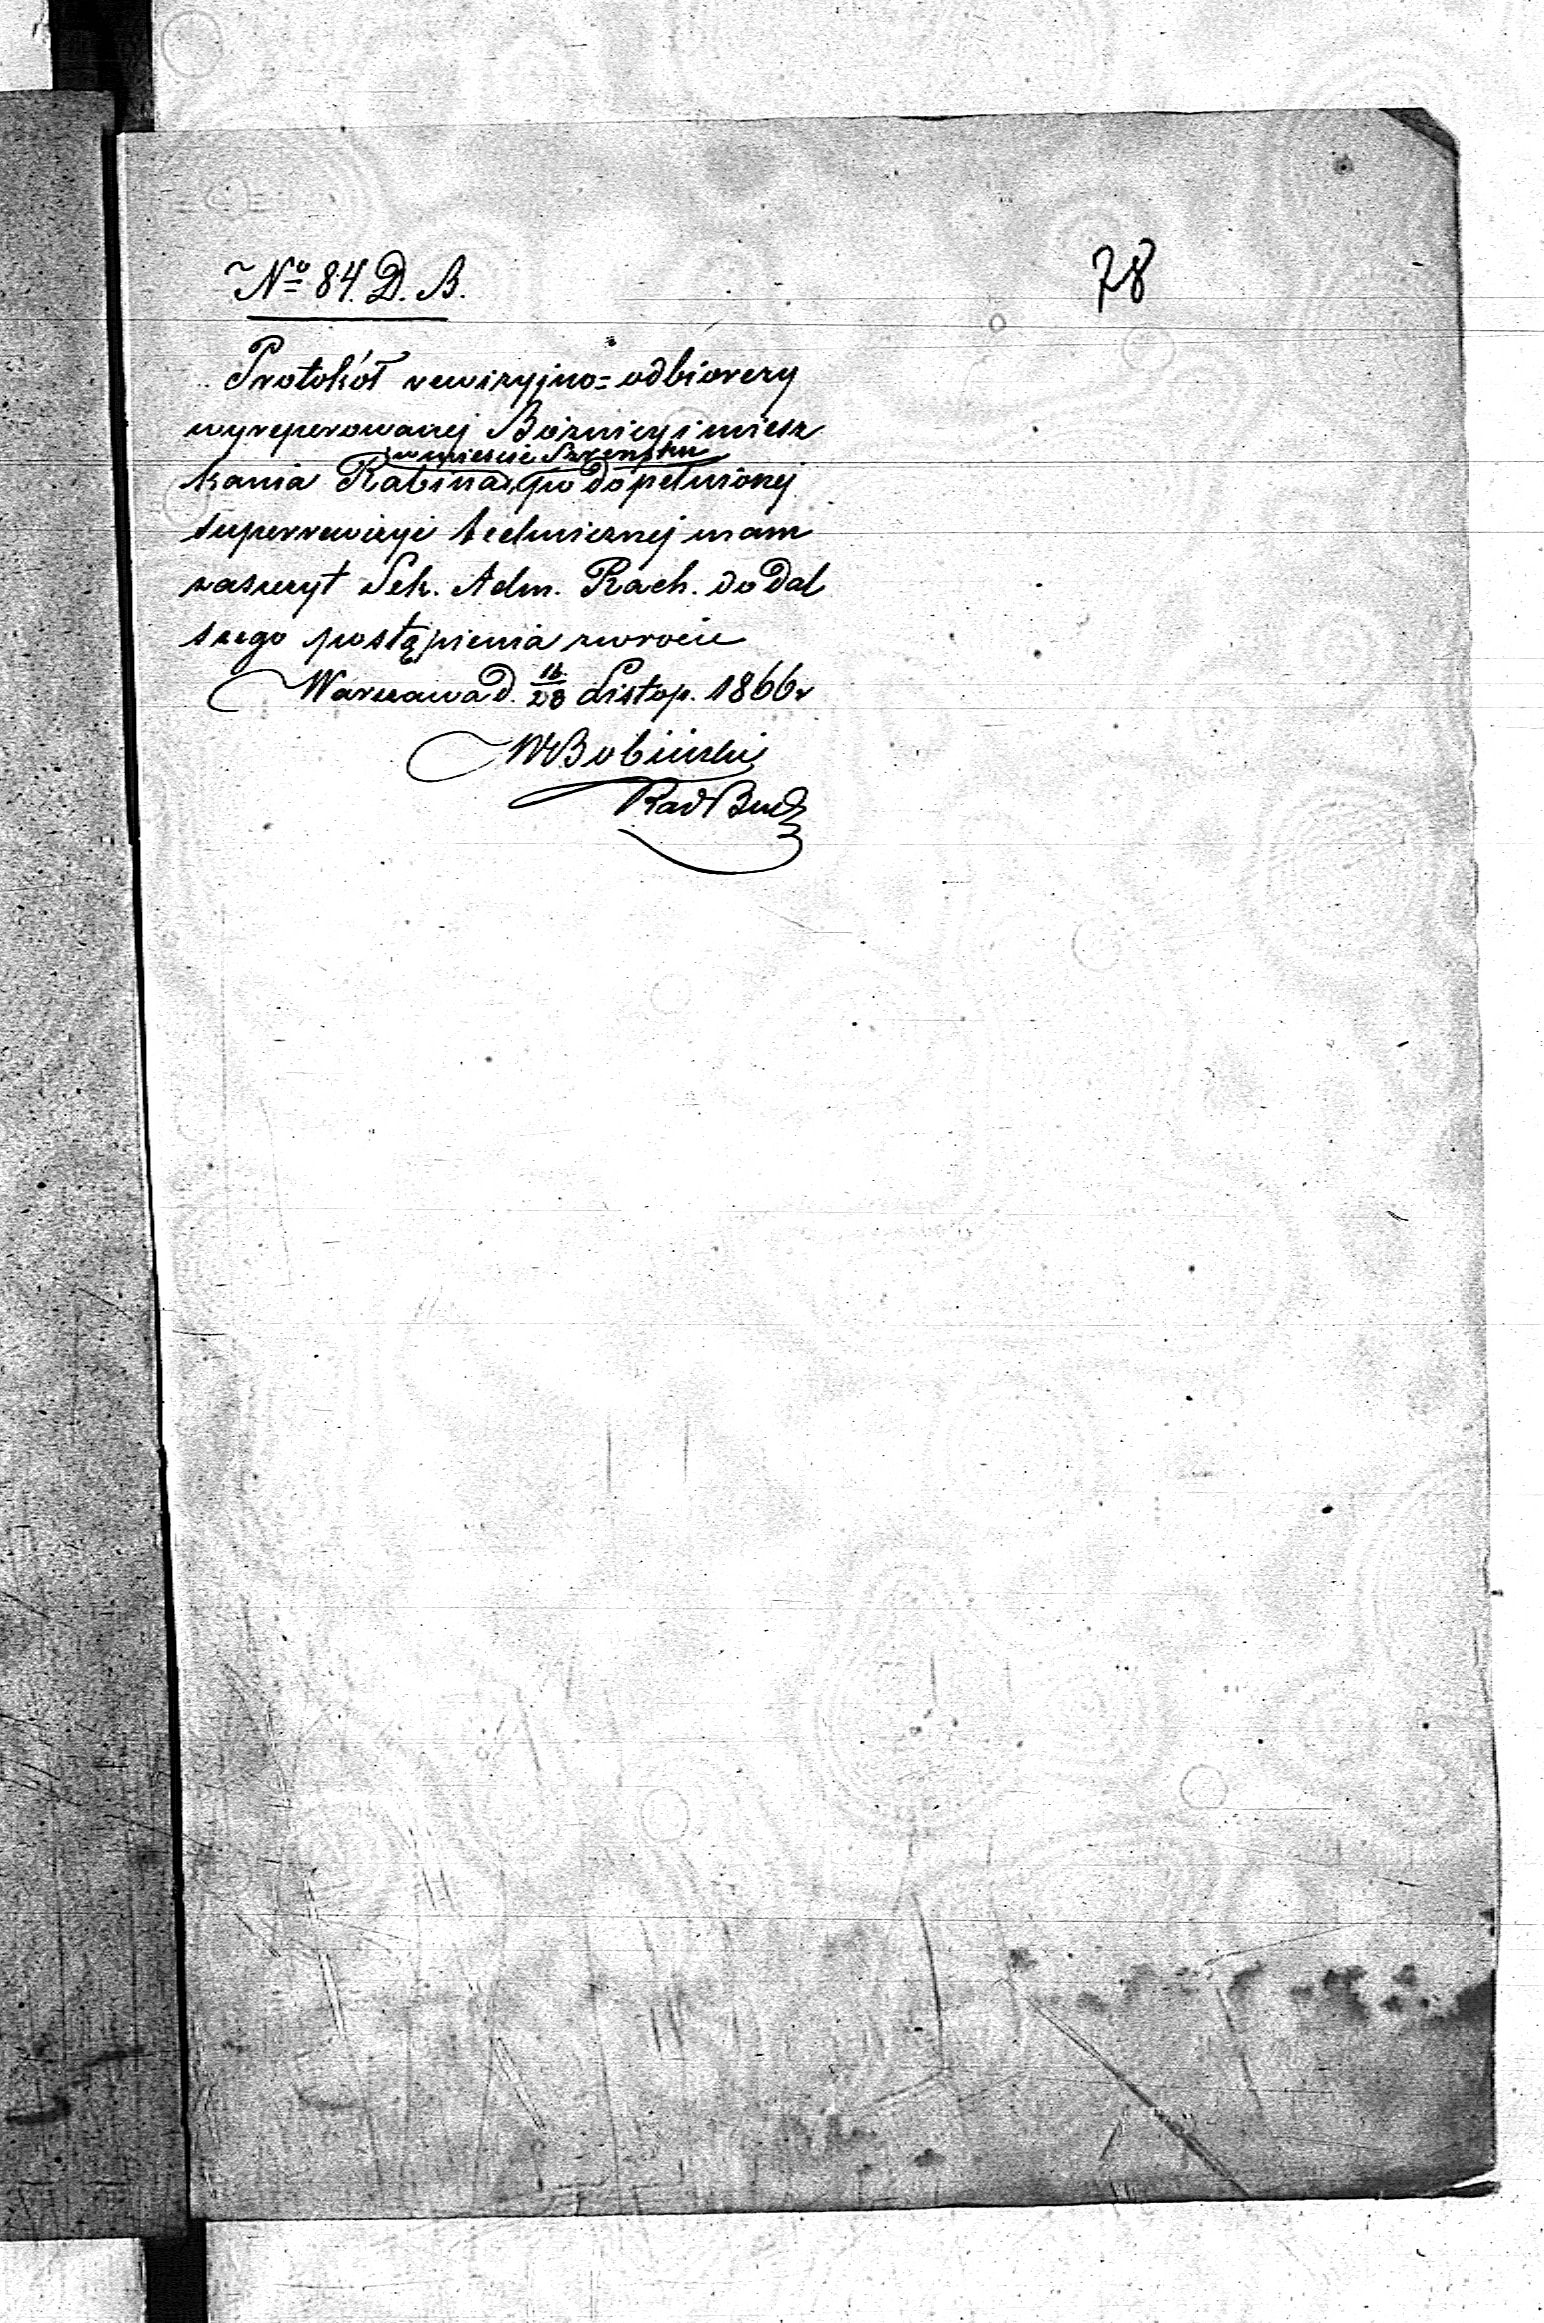 № 84. D. B.
78
Protokół rewizyjno=odbiorczy
wyreperowanej Bóżnicy i miesz
w mieście Szreńsku
kania Rabina, po dopełnionej
superrewizyi technicznej mam
zaszczyt Sek. Adm. Rach. do dal
szego postąpienia zwrócić
Warszawa d. 16/28 Listop. 1866 r
WBobiński
Rad Bud